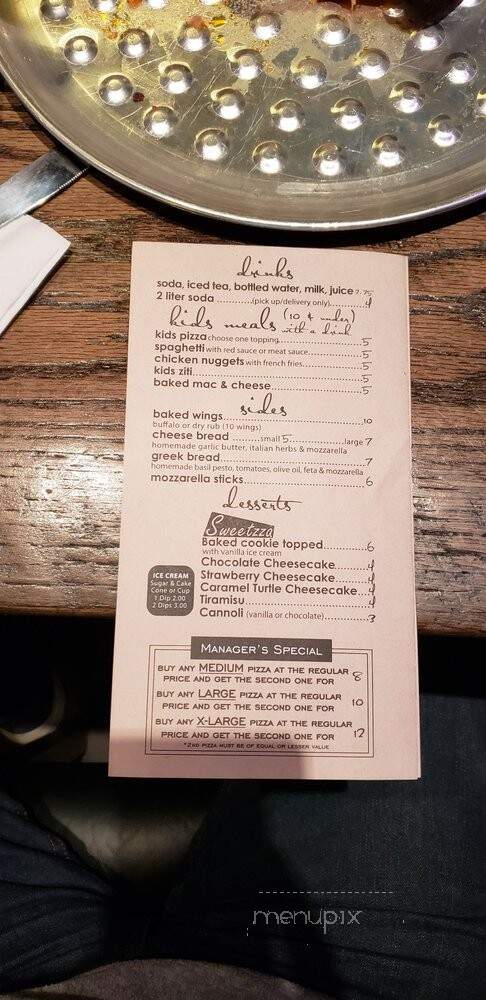 drinks
soda, iced tea, bottled water, milk, juice 2.75
2 liter soda ............(pick up/delivery only)............4
kids meals (10 & under) with a drink
kids pizza choose one topping............5
spaghetti with red sauce or meat sauce............5
chicken nuggets with french fries............5
kids ziti............5
baked mac & cheese............5
sides
baked wings............10
buffalo or dry rub (10 wings)
cheese bread .........small 5............large 7
homemade garlic butter, italian herbs & mozzarella
greek bread............7
homemade basil pesto, tomatoes, olive oil, feta & mozzarella
mozzarella sticks............6
desserts
Sweetzza
Baked cookie topped............6
with vanilla ice cream
Chocolate Cheesecake............4
Strawberry Cheesecake............4
Caramel Turtle Cheesecake....4
Tiramisu............4
Cannoli (vanilla or chocolate)............3
ICE CREAM
Sugar & Cake
Cone or Cup
1 Dip 2.00
2 Dips 3.00
MANAGER'S SPECIAL
BUY ANY MEDIUM PIZZA AT THE REGULAR
PRICE AND GET THE SECOND ONE FOR 8
BUY ANY LARGE PIZZA AT THE REGULAR
PRICE AND GET THE SECOND ONE FOR 10
BUY ANY X-LARGE PIZZA AT THE REGULAR
PRICE AND GET THE SECOND ONE FOR 12
*2ND PIZZA MUST BE OF EQUAL OR LESSER VALUE
menupix